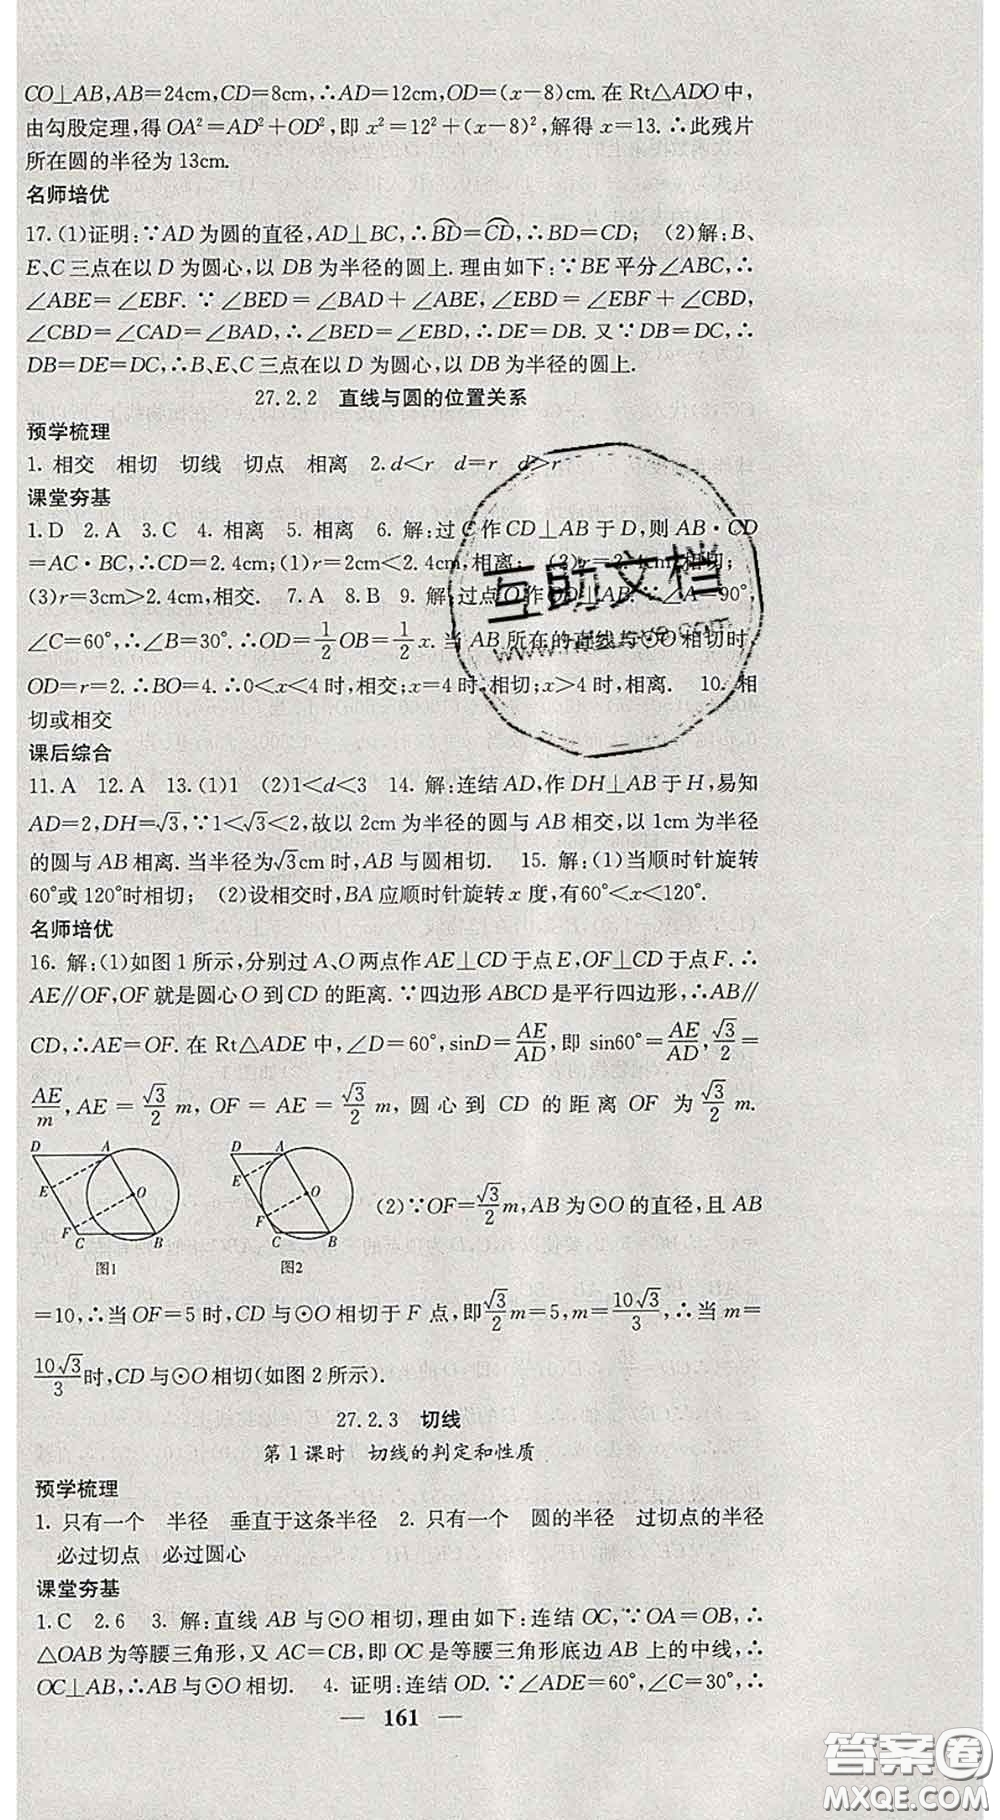 CO⊥AB,AB=24cm,CD=8cm,∴AD=12cm,OD=(x-8)cm.在Rt△ADO中,
由勾股定理,得OA²=AD²+OD²,即x²=12²+(x-8)²,解得x=13.∴此残片
所在圆的半径为13cm.
名师培优
17.(1)证明:∵AD为圆的直径,AD⊥BC,∴BD=CD,∴BD=CD; (2)解:B、
E、C三点在以D为圆心,以DB为半径的圆上.理由如下:∵BE平分∠ABC,∴
∠ABE=∠EBF.∵∠BED=∠BAD+∠ABE,∠EBD=∠EBF+∠CBD,
∠CBD=∠CAD=∠BAD,∴∠BED=∠EBD,∴DE=DB.又∵DB=DC,∴
DB=DE=DC,∴B、E、C三点在以D为圆心,以DB为半径的圆上.
27.2.2 直线与圆的位置关系
预学梳理
1.相交 相切 切线 切点 相离 2.d<r d=r d>r
课堂夯基
1.D 2.A 3.C 4.相离 5.相离 6.解:过C作CD⊥AB于D,则AB·CD
=AC·BC,∴CD=2.4cm;(1)r=2cm<2.4cm,相离; (2)r=2.4cm,相切;
(3)r=3cm>2.4cm,相交. 7.A 8.B 9.解:过点O作OD⊥AB.∵∠A=90°,
∠C=60°,∴∠B=30°.∴OD=1/2OB=1/2x.当AB所在的直线与⊙O相切时,
OD=r=2.∴BO=4.∴0<x<4时,相交;x=4时,相切;x>4时,相离. 10.相
切或相交
课后综合
11.A 12.A 13.(1)1 (2)1<d<3 14.解:连结AD,作DH⊥AB于H,易知
AD=2,DH=√3,∵1<√3<2,故以2cm为半径的圆与AB相交,以1cm为半径
的圆与AB相离.当半径为√3cm时,AB与圆相切. 15.解:(1)当顺时针旋转
60°或120°时相切; (2)设相交时,BA应顺时针旋转x度,有60°<x<120°.
名师培优
16.解:(1)如图1所示,分别过A、O两点作AE⊥CD于点E,OF⊥CD于点F.∴
AE∥OF,OF就是圆心O到CD的距离.∵四边形ABCD是平行四边形,∴AB∥
CD,∴AE=OF.在Rt△ADE中,∠D=60°,sinD=AE/AD,即sin60°=AE/AD,√3/2=
AE/m,AE=√3/2 m,OF=AE=√3/2 m,圆心到CD的距离OF为√3/2 m.
D A E O F C B 图1
D A E O F C B 图2
(2)∵OF=√3/2 m,AB为⊙O的直径,且AB
=10,∴当OF=5时,CD与⊙O相切于F点,即√3/2 m=5,m=10√3/3,∴当m=
10√3/3时,CD与⊙O相切(如图2所示).
27.2.3 切线
第1课时 切线的判定和性质
预学梳理
1.只有一个 半径 垂直于这条半径 2.只有一个 圆的半径 过切点的半径
必过切点 必过圆心
课堂夯基
1.C 2.6 3.解:直线AB与⊙O相切,理由如下:连结OC,∵OA=OB,∴
△OAB为等腰三角形,又AC=CB,即OC是等腰三角形底边AB上的中线,∴
OC⊥AB,∴AB与⊙O相切. 4.证明:连结OD.∵∠ADE=60°,∠C=30°,∴
— 161 —
互助文档
答案圈
MXQE.COM